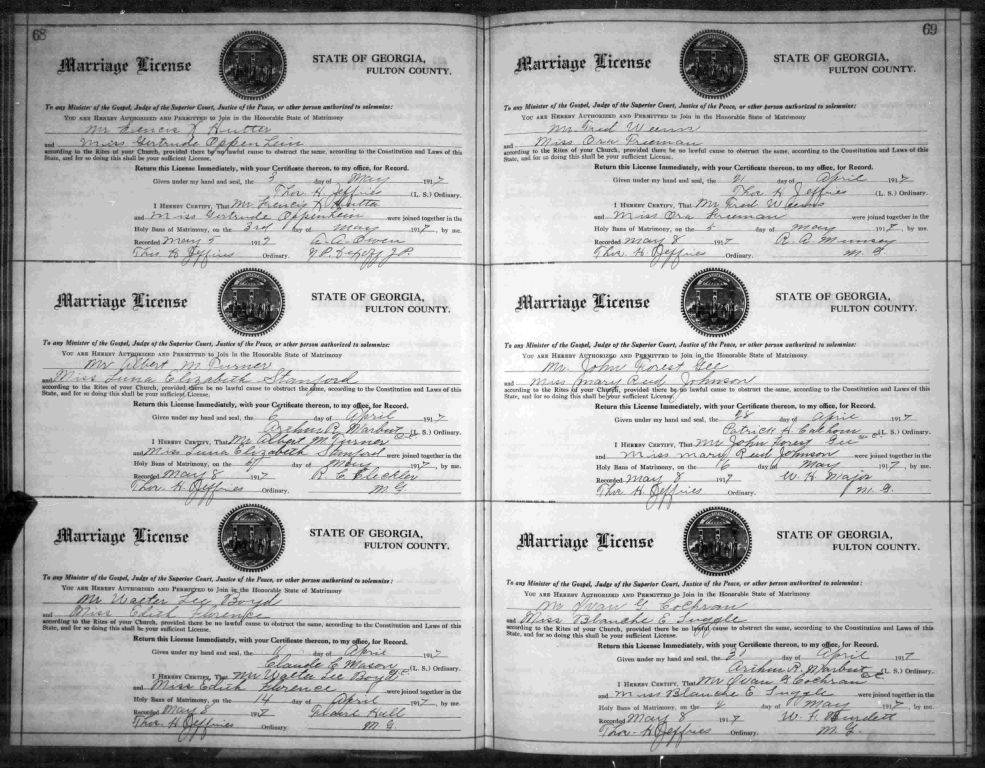 68
Marriage License
STATE OF GEORGIA,
FULTON COUNTY.
To any Minister of the Gospel, Judge of the Superior Court, Justice of the Peace, or other person authorized to solemnize:
YOU ARE HEREBY AUTHORIZED AND PERMITTED to Join in the Honorable State of Matrimony
Mr Frencis K Hutter
and Miss Gertrude Oppenheim
according to the Rites of your Church, provided there be no lawful cause to obstruct the same, according to the Constitution and Laws of this
State, and for so doing this shall be your sufficient License.
Return this License Immediately, with your Certificate thereon, to my office, for Record.
Given under my hand and seal, the 3 day of May 1917
Thos. H. Jeffries (L. S.) Ordinary.
I HEREBY CERTIFY, That Mr Frencis K Hutter
and Miss Gertrude Oppenheim were joined together in the
Holy Bans of Matrimony, on the 3rd day of May 1917, by me.
Recorded May 5 1917 A. A. Owen
Thos H Jeffries Ordinary. J.P.
Marriage License
STATE OF GEORGIA,
FULTON COUNTY.
To any Minister of the Gospel, Judge of the Superior Court, Justice of the Peace, or other person authorized to solemnize:
YOU ARE HEREBY AUTHORIZED AND PERMITTED to Join in the Honorable State of Matrimony
Mr Albert M Turner
and Miss Luna Elizabeth Stanford
according to the Rites of your Church, provided there be no lawful cause to obstruct the same, according to the Constitution and Laws of this
State, and for so doing this shall be your sufficient License.
Return this License Immediately, with your Certificate thereon, to my office, for Record.
Given under my hand and seal, the 6 day of April 1917
Arthur R. Marbut C.C. (L. S.) Ordinary.
I HEREBY CERTIFY, That Mr Albert M Turner
and Miss Luna Elizabeth Stanford were joined together in the
Holy Bans of Matrimony, on the 6 day of May 1917, by me.
Recorded May 8 1917 R. E.
Thos. H. Jeffries Ordinary. M G
Marriage License
STATE OF GEORGIA,
FULTON COUNTY.
To any Minister of the Gospel, Judge of the Superior Court, Justice of the Peace, or other person authorized to solemnize:
YOU ARE HEREBY AUTHORIZED AND PERMITTED to Join in the Honorable State of Matrimony
Mr Walter Lee Boyd
and Miss Edith Florence
according to the Rites of your Church, provided there be no lawful cause to obstruct the same, according to the Constitution and Laws of this
State, and for so doing this shall be your sufficient License.
Return this License Immediately, with your Certificate thereon, to my office, for Record.
Given under my hand and seal, the day of April 1917
Claude E Mason C.C. (L. S.) Ordinary.
I HEREBY CERTIFY, That Mr Walter Lee Boyd
and Miss Edith Florence were joined together in the
Holy Bans of Matrimony, on the 14 day of April 1917, by me.
Recorded May 8 1917 Hall
Thos H Jeffries Ordinary. M G
69
Marriage License
STATE OF GEORGIA,
FULTON COUNTY.
To any Minister of the Gospel, Judge of the Superior Court, Justice of the Peace, or other person authorized to solemnize:
YOU ARE HEREBY AUTHORIZED AND PERMITTED to Join in the Honorable State of Matrimony
Mr. Fred Weems
and Miss Ora Freeman
according to the Rites of your Church, provided there be no lawful cause to obstruct the same, according to the Constitution and Laws of this
State, and for so doing this shall be your sufficient License.
Return this License Immediately, with your Certificate thereon, to my office, for Record.
Given under my hand and seal, the 21 day of April 1917
Thos H Jeffries (L. S.) Ordinary.
I HEREBY CERTIFY, That Mr Fred Weems
and Miss Ora Freeman were joined together in the
Holy Bans of Matrimony, on the 5 day of May 1917, by me.
Recorded May 8 1917 R. A. Munsey
Thos. H Jeffries Ordinary. M. G.
Marriage License
STATE OF GEORGIA,
FULTON COUNTY.
To any Minister of the Gospel, Judge of the Superior Court, Justice of the Peace, or other person authorized to solemnize:
YOU ARE HEREBY AUTHORIZED AND PERMITTED to Join in the Honorable State of Matrimony
Mr. John Forest Gee
and Miss Mary Reid Johnson
according to the Rites of your Church, provided there be no lawful cause to obstruct the same, according to the Constitution and Laws of this
State, and for so doing this shall be your sufficient License.
Return this License Immediately, with your Certificate thereon, to my office, for Record.
Given under my hand and seal, the 28 day of April 1917
Patrick H Calhoun C.C. (L. S.) Ordinary.
I HEREBY CERTIFY, That Mr John Forest Gee
and Miss Mary Reid Johnson were joined together in the
Holy Bans of Matrimony, on the 6 day of May 1917, by me.
Recorded May 8 1917 W. H. Major
Thos. H Jeffries Ordinary. M. G.
Marriage License
STATE OF GEORGIA,
FULTON COUNTY.
To any Minister of the Gospel, Judge of the Superior Court, Justice of the Peace, or other person authorized to solemnize:
YOU ARE HEREBY AUTHORIZED AND PERMITTED to Join in the Honorable State of Matrimony
Mr Ivan G Cochran
and Miss Blanche E Suggle
according to the Rites of your Church, provided there be no lawful cause to obstruct the same, according to the Constitution and Laws of this
State, and for so doing this shall be your sufficient License.
Return this License Immediately, with your Certificate thereon, to my office, for Record.
Given under my hand and seal, the 31 day of April 1917
Arthur R. Marbut C.C. (L. S.) Ordinary.
I HEREBY CERTIFY, That Mr Ivan G Cochran
and Miss Blanche E. Suggle were joined together in the
Holy Bans of Matrimony, on the 4 day of May 1917, by me.
Recorded May 8 1917 W. F. Burdett
Thos. H Jeffries Ordinary. M. G.